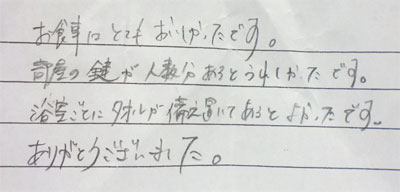 お食事はとてもおいしかったです。
部屋の鍵が人数分あるとうれしかったです。
浴室ごとにタオルが備え置いてあるとよかったです。
ありがとうございました。